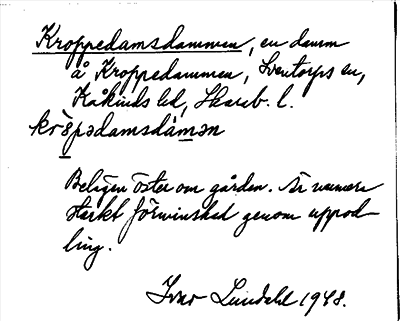 Kroppedamsdammen, en damm
å Kroppedammen, Sventorps sn,
Kåkinds hd, Skarab. l.
krɔ̀pədamsdàmən
Belägen öster om gården. Är numera
starkt förminskad genom uppod-
ling.
Ivar Lundahl 1948.